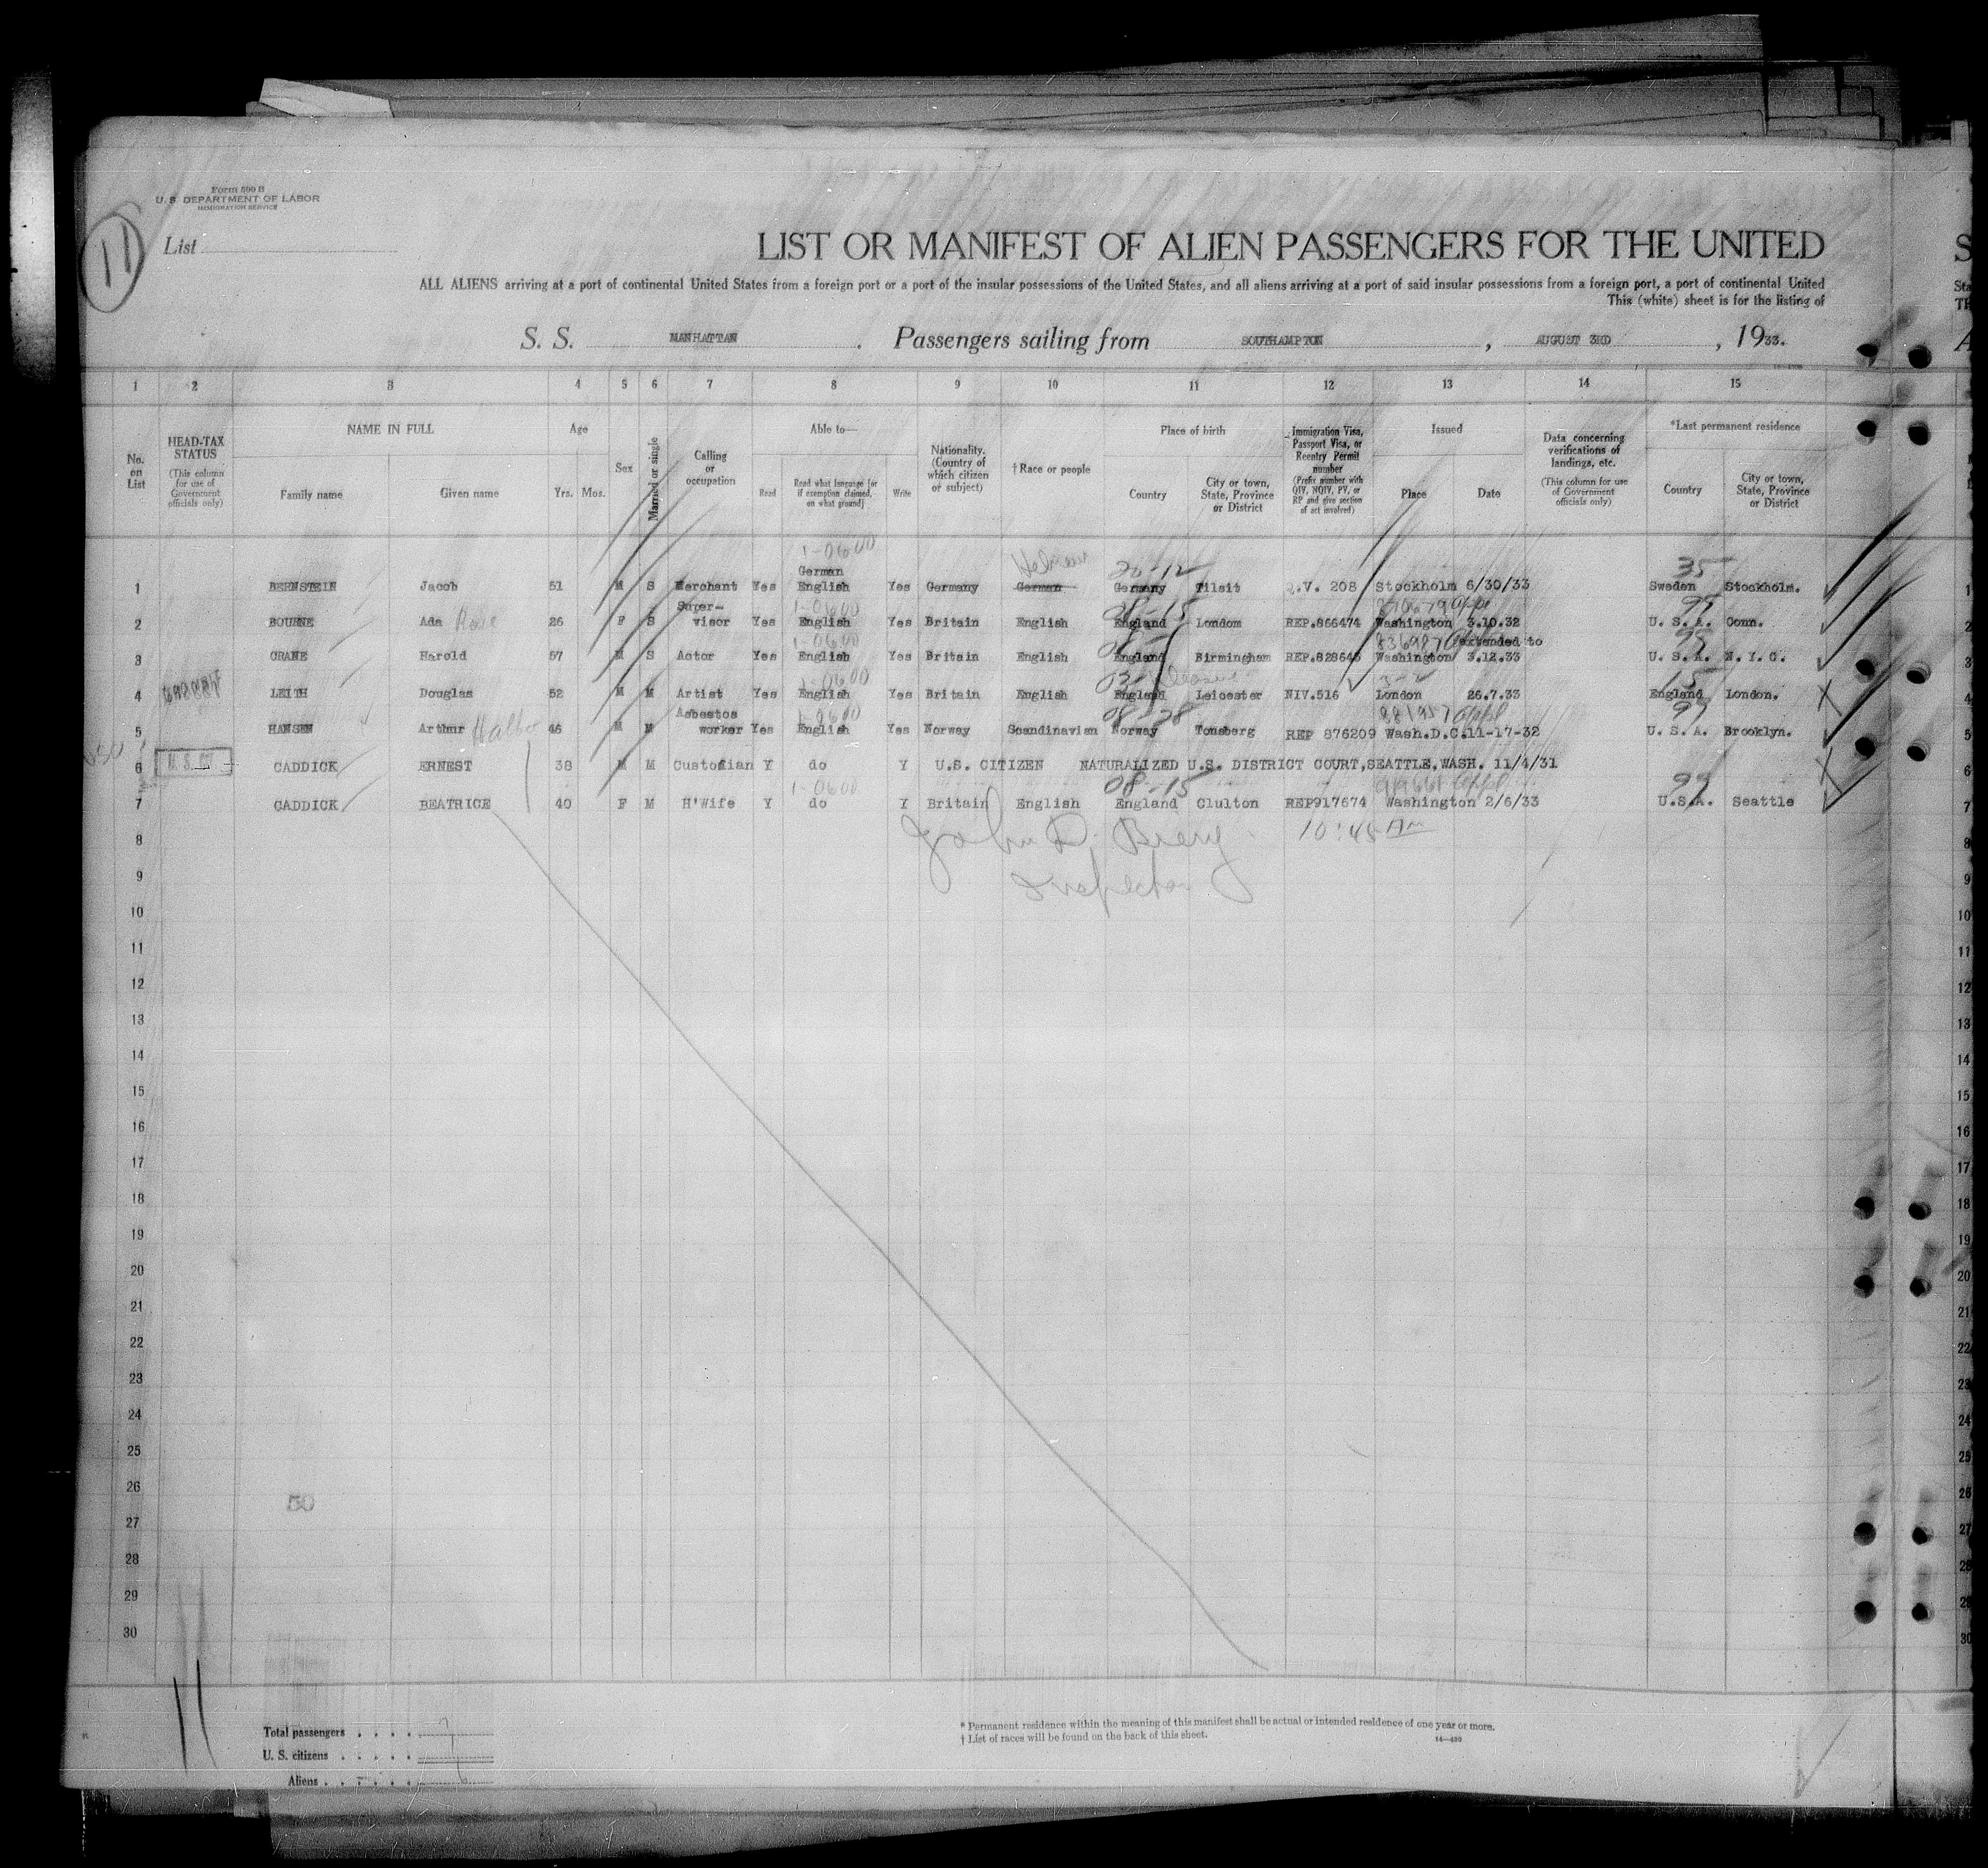 Form 500 B
U. S. DEPARTMENT OF LABOR
IMMIGRATION SERVICE
11
List
LIST OR MANIFEST OF ALIEN PASSENGERS FOR THE UNITED
ALL ALIENS arriving at a port of continental United States from a foreign port or a port of the insular possessions of the United States, and all aliens arriving at a port of said insular possessions from a foreign port, a port of continental United
This (white) sheet is for the listing of
S. S. MANHATTAN. Passengers sailing from SOUTHAMPTON, AUGUST 3RD, 1933.
1 2 3 4 5 6 7 8 9 10 11 12 13 14 15
No. on List
HEAD-TAX STATUS (This column for use of Government officials only)
NAME IN FULL Family name Given name
Age Yrs. Mos.
Sex
Married or single
Calling or occupation
Able to— Read Read what language [or if exemption claimed, on what ground] Write
Nationality. (Country of which citizen or subject)
† Race or people
Place of birth Country City or town, State, Province or District
Immigration Visa, Passport Visa, or Reentry Permit number (Prefix number with QIV, NQIV, PV, or RP and give section of act involved)
Issued Place Date
Data concerning verifications of landings, etc. (This column for use of Government officials only)
*Last permanent residence Country City or town, State, Province or District
1-0600 Hebrew 20-12 35
German
1 BERNSTEIN Jacob 51 M S Merchant Yes English Yes Germany German Germany Tilsit Q.V. 208 Stockholm 6/30/33 Sweden Stockholm. 1
Super- 1-0600 08-15 99
2 BOURNE Ada Rose 26 F S visor Yes English Yes Britain English England London REP.866474 Washington 3.10.32 U. S. A. Conn. 2
1-0600 extended to 99
3 CRANE Harold 57 M S Actor Yes English Yes Britain English England Birmingham REP.828645 Washington 3.12.33 U. S. A. N. Y. C. 3
15
4 LEITH Douglas 52 M M Artist Yes English Yes Britain English England Leicester NIV.516 London 26.7.33 England London. 4
Asbestos 1-0600 08-28 99
5 HANSEN Arthur 46 M M worker Yes English Yes Norway Scandinavian Norway Tonsberg REP 876209 Wash.D.C.11-17-32 U. S. A. Brooklyn. 5
6 CADDICK ERNEST 38 M M Custodian Y do Y U.S. CITIZEN NATURALIZED U.S. DISTRICT COURT,SEATTLE,WASH. 11/4/31 6
1-0600 08-15 99
7 CADDICK BEATRICE 40 F M H'Wife Y do Y Britain English England Clulton REP917674 Washington 2/6/33 U.S.A. Seattle 7
8 John D. 10:45 Am 8
9 Inspector 9
10 10
11 11
12 12
13 13
14 14
15 15
16 16
17 17
18 18
19 19
20 20
21 21
22 22
23 23
24 24
25 25
26 26
50
27 27
28 28
29 29
30 30
11
Total passengers . . . . 7
U. S. citizens . . . . . 1
Aliens . . . . . . 6
* Permanent residence within the meaning of this manifest shall be actual or intended residence of one year or more.
† List of races will be found on the back of this sheet.
14—430